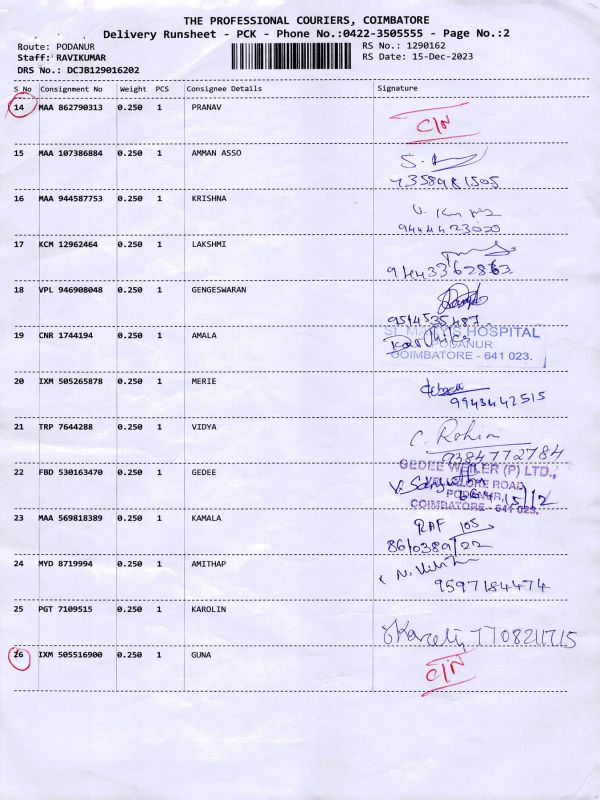 THE PROFESSIONAL COURIERS, COIMBATORE
Delivery Runsheet - PCK - Phone No.:0422-3505555 - Page No.:2
Route: PODANUR RS No.: 1290162
Staff: RAVIKUMAR RS Date: 15-Dec-2023
DRS No.: DCJB129016202
S No Consignment No Weight PCS Consignee Details Signature
14 MAA 862790313 0.250 1 PRANAV C/N
15 MAA 107386884 0.250 1 AMMAN ASSO
7358981505
16 MAA 944587753 0.250 1 KRISHNA
9444423020
17 KCM 12962464 0.250 1 LAKSHMI
9443362863
18 VPL 946908048 0.250 1 GENGESWARAN
9514535487
19 CNR 1744194 0.250 1 AMALA ST. MARY'S HOSPITAL
PODANUR
COIMBATORE - 641 023.
20 IXM 505265878 0.250 1 MERIE
9943442515
21 TRP 7644288 0.250 1 VIDYA C. Rohini
9384772784
22 FBD 530163470 0.250 1 GEDEE GEDEE WEILER (P) LTD.,
ROAD
PODANUR,
15/12
COIMBATORE - 641 023.
23 MAA 569818389 0.250 1 KAMALA RAF 105
8610389122
24 MYD 8719994 0.250 1 AMITHAP
9597184474
25 PGT 7109515 0.250 1 KAROLIN
7708211715
26 IXM 505516900 0.250 1 GUNA C/N